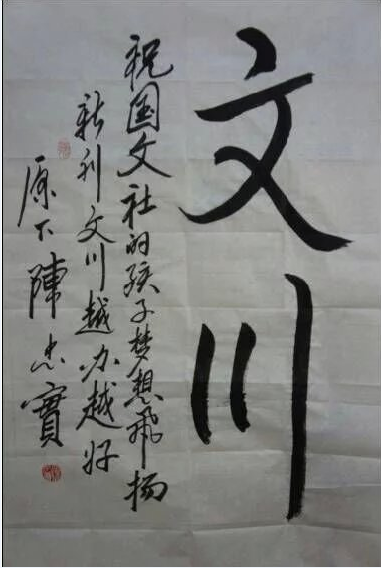 文川
祝国文社的孩子梦想飞扬
新刊文川越办越好
原下陳忠實